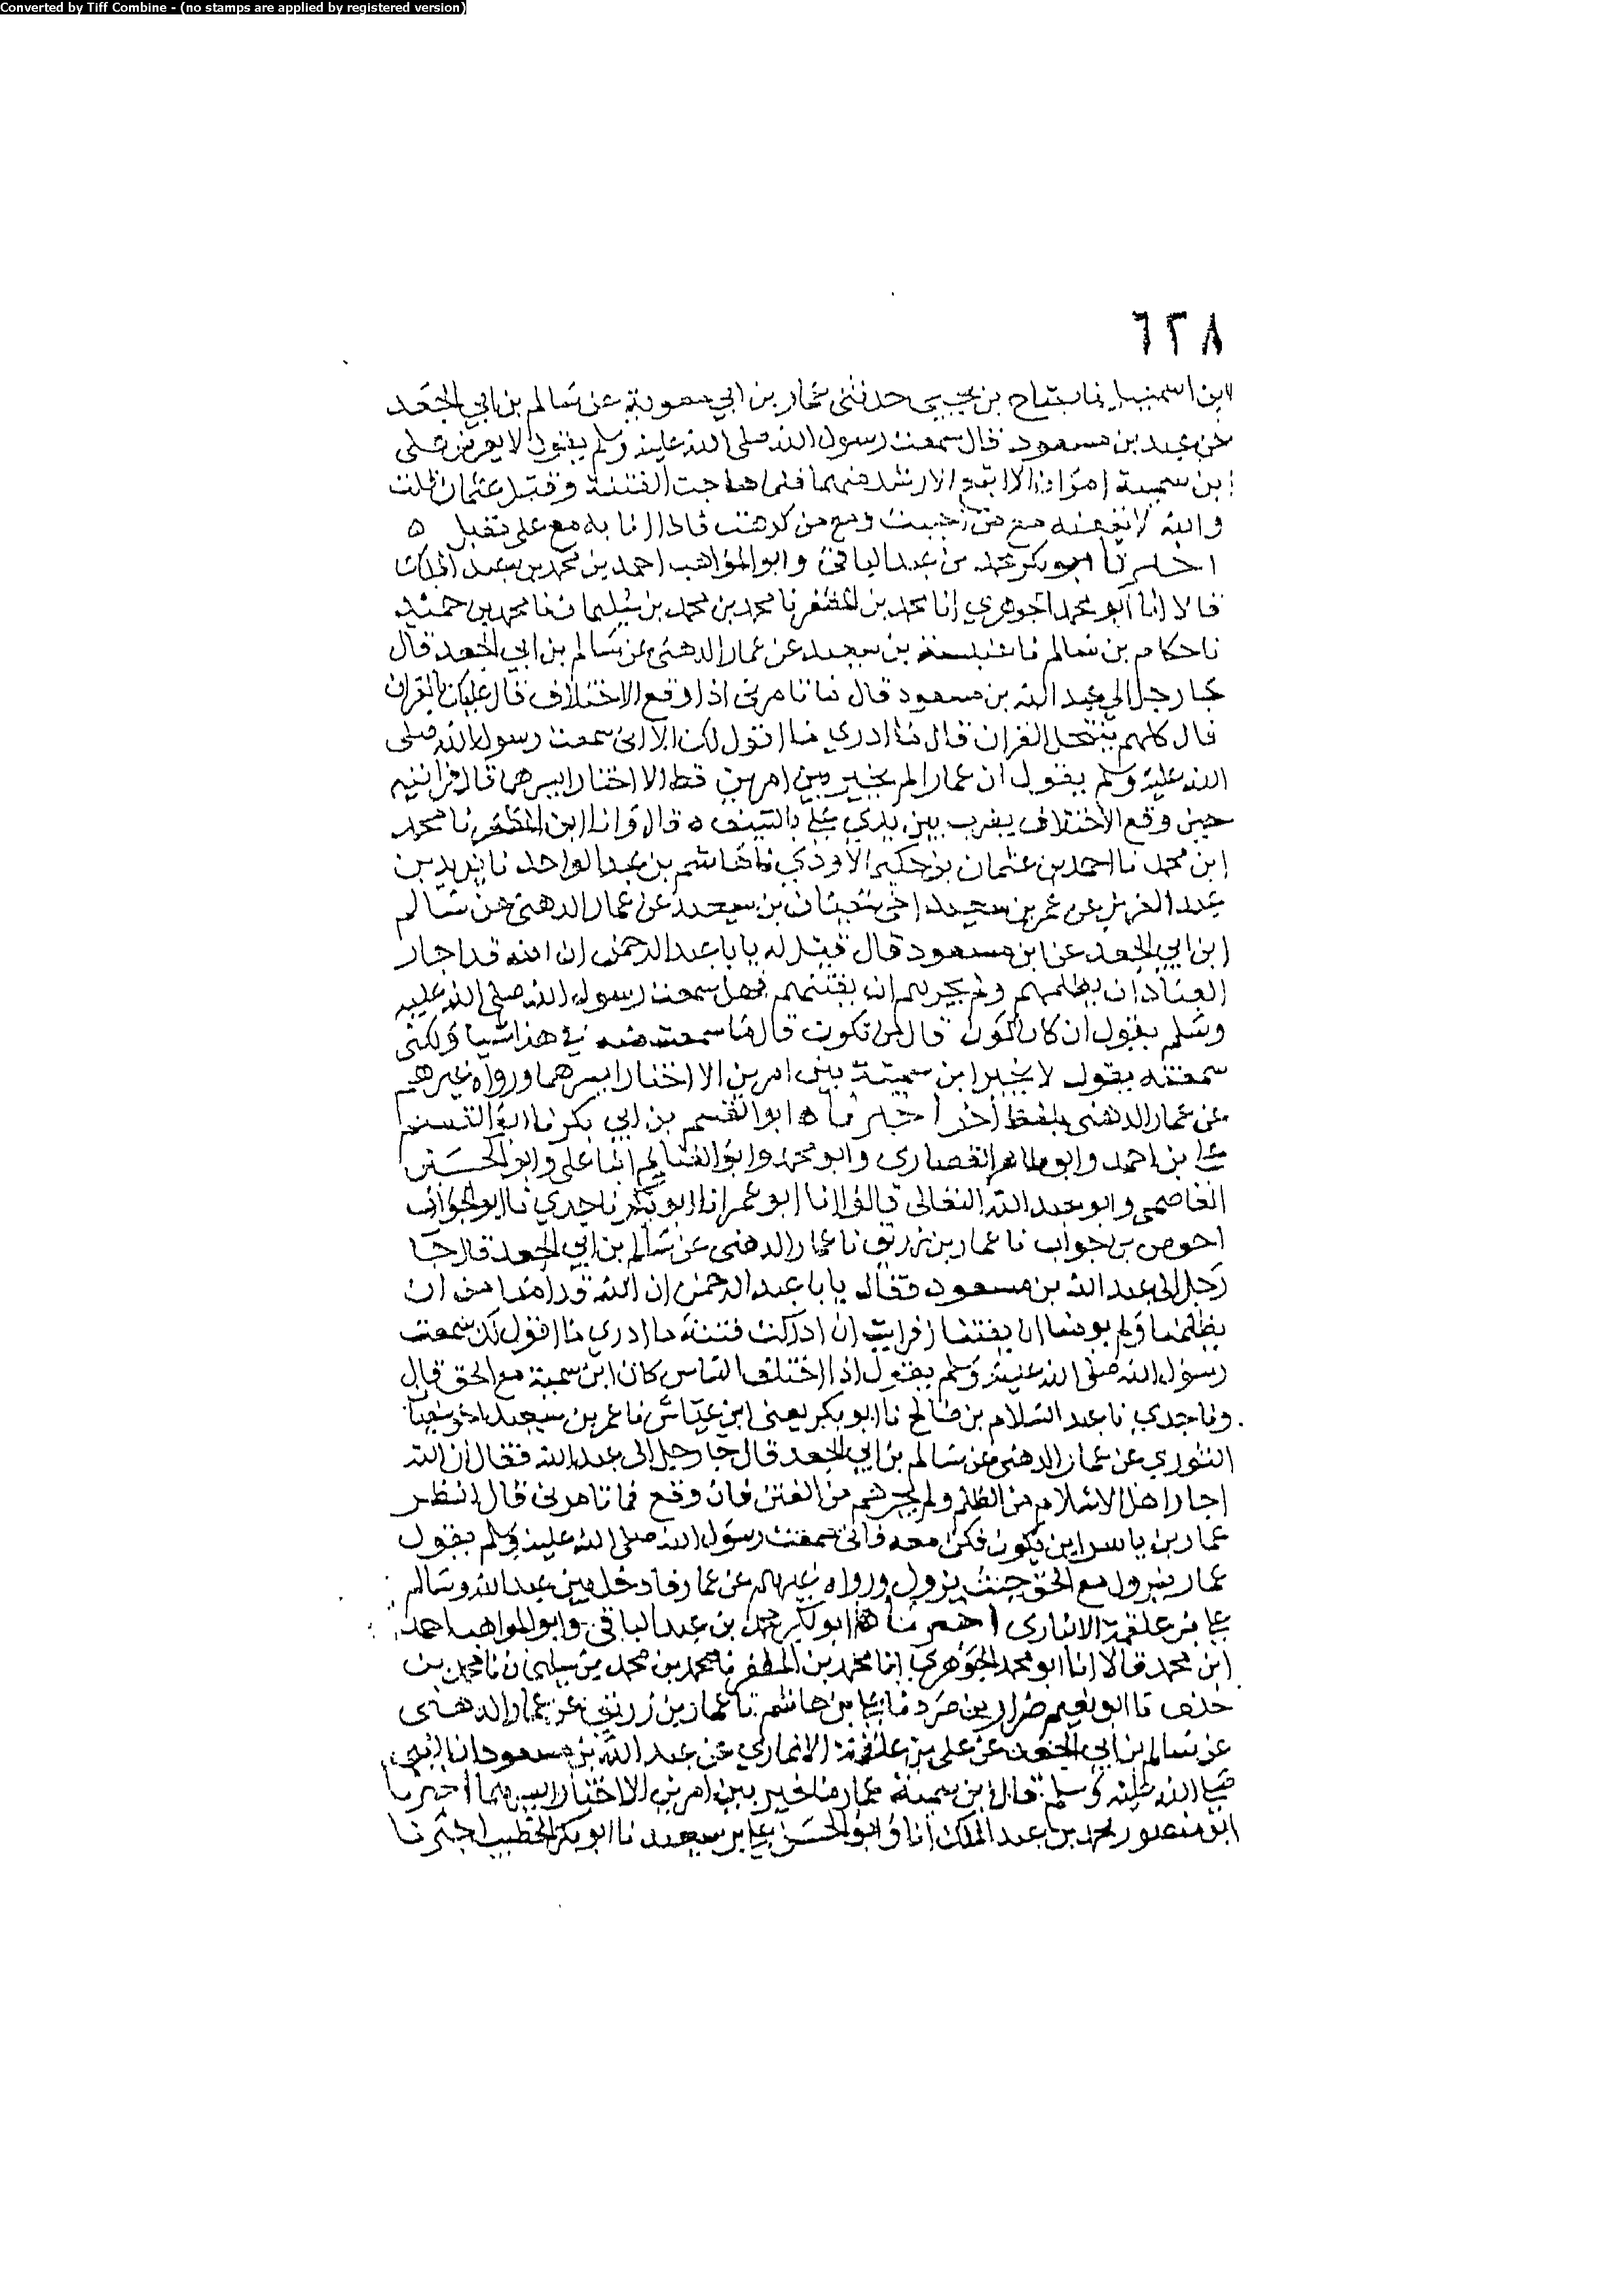 Converted by Tiff Combine - (no stamps are applied by registered version)
٦٢٨
ابن اسمعيل نا بسام بن يحيى حدثني عمار بن ابي معوية عن سالم بن ابي الجعد
عن عبد بن مسعود قال سمعت رسول الله صلى الله عليه وسلم يقول لا يعرض على
ابن سمية امران الا اتبع الارشد منهما فلما هاجت الفتنة وقتل عثمان قلت
والله لاتبعنه مع من احببت ومع من كرهت فاذا انا به مع على مقبل ه
اخبرنا ابو بكر محمد بن عبد الباقى وابو المواهب احمد بن محمد بن عبد الملك
قالا انا ابو محمد الجوهري انا محمد بن المظفر نا محمد بن محمد بن سليمان نا محمد بن حميد
نا حكام بن سالم نا عنبسة بن سعيد عن عمار الدهنى عن سالم بن ابي الجعد قال
جا رجل الى عبد الله بن مسعود قال ما تامرنى اذا وقع الاختلاف قال عليك بالقران
قال كلهم ينتحل القران قال ما ادري ما اقول لك الا انى سمعت رسول الله صلى
الله عليه وسلم يقول ان عمارا لم يخير بين امرين قط الا اختار ايسرهما قال فرايته
حين وقع الاختلاف يضرب بين يدي علي بالسيف ه قال وانا ابن المظفر نا محمد
ابن محمد نا احمد بن عثمان بن حكيم الاودي نا هاشم بن عبد الواحد نا يزيد بن
عبد العزيز عن عمر بن سعيد اخى سفيان بن سعيد عن عمار الدهنى عن سالم
ابن ابي الجعد عن ابن مسعود قال قيل له يا با عبد الرحمن ان الله قد اجار
العباد ان يظلمهم ولم يجرهم ان يفتنهم فهل سمعت رسول الله صلى الله عليه
وسلم يقول ان كان الكون قال من تكون قال ما سمعت منه في هذا شيا ولكنى
سمعته يقول لا يخير ابن سمية بين امرين الا اختار ايسرهما ورواه غيرهم
عن عمار الدهنى بلفظ اخر اخبرناه ابو القسم بن ابي بكر نا ابو القسم
علي بن احمد وابو طاهر القصارى وابو محمد وابو الغنايم ابنا على وابو الحسين
العاصمى وابو عبد الله النعالى قالوا انا ابو عمر انا ابو بكر نا جدي نا ابو الجواب
احوص بن جواب نا عمار بن زريق نا عمار الدهنى عن سالم بن ابي الجعد قال جا
رجل الى عبد الله بن مسعود فقال يا با عبد الرحمن ان الله قد امنا من ان
يظلمنا ولم يومنا ان يفتنا افرايت ان ادركت فتنة ما ادري ما اقول لك سمعت
رسول الله صلى الله عليه وسلم يقول اذا اختلف الناس كان ابن سمية مع الحق قال
ونا جدي نا عبد السلام بن صالح نا ابو بكر يعنى ابن عياش نا عمر بن سعيد اخو سفيان
الثوري عن عمار الدهنى عن سالم بن ابي الجعد قال جا رجل الى عبد الله فقال ان الله
اجار اهل الاسلام من الظلم ولم يجرهم من الفتن فان وقع فما تامرنى قال انظر
عمار بن ياسر اين يكون فكن معه فانى سمعت رسول الله صلى الله عليه وسلم يقول
عمار يزول مع الحق حيث يزول ورواه غيرهم عن عمار فادخل بين عبد الله وسالم
علي بن علقمة الانمارى اخبرناه ابو بكر محمد بن عبد الباقى وابو المواهب احمد
ابن محمد قالا انا ابو محمد الجوهري انا محمد بن المظفر نا محمد بن محمد بن سليمان نا محمد بن
خلف نا ابو نعيم ضرار بن صرد نا علي بن هاشم نا عمار بن زريق عن عمار الدهنى
عن سالم بن ابي الجعد عن علي بن علقمة الانماري عن عبد الله بن مسعود ان النبى
صلى الله عليه وسلم قال ابن سمية عمار ما خير بين امرين الا اختار ايسرهما اخبرنا
ابو منصور محمد بن عبد الملك انا وابو الحسن علي بن سعيد نا ابو بكر الخطيب اخبرنا